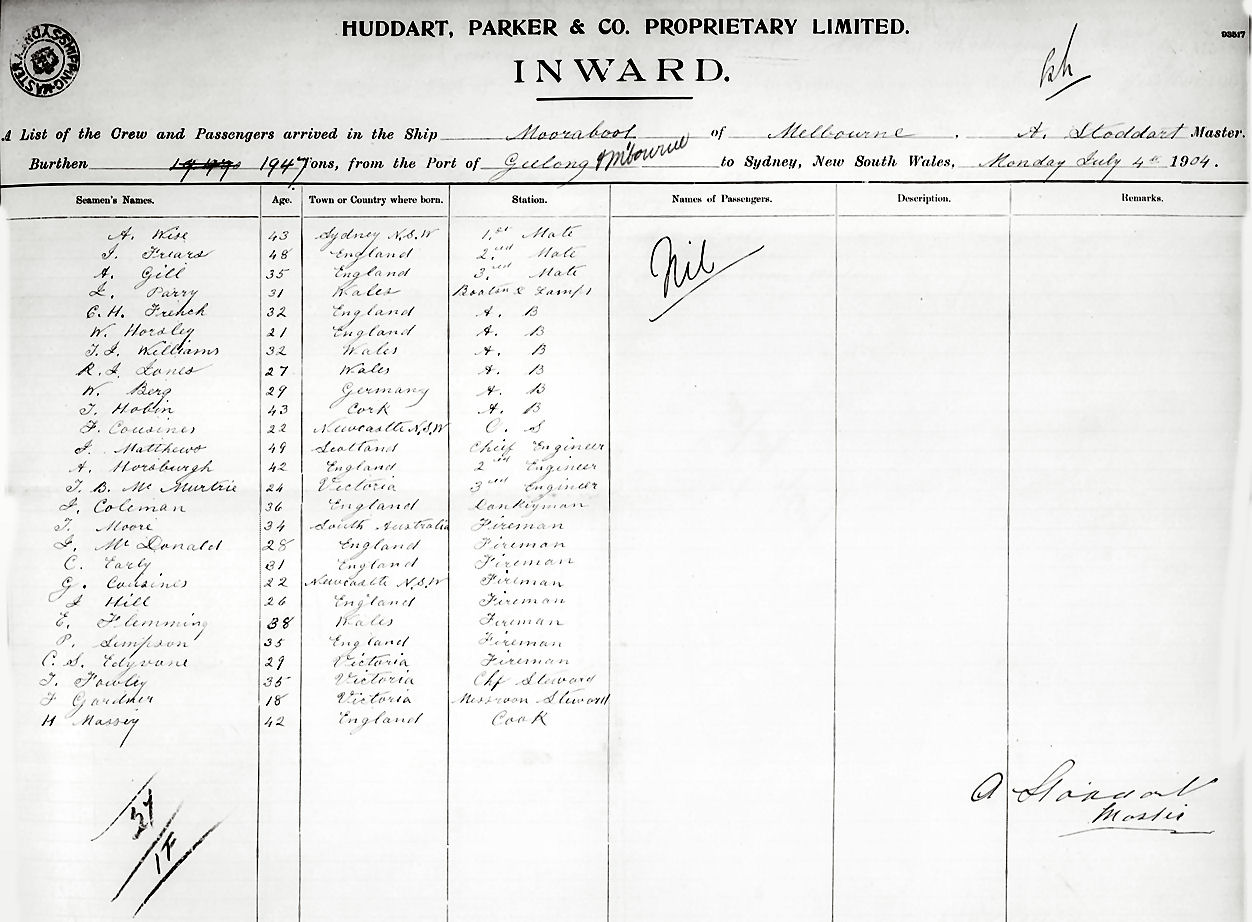 HUDDART, PARKER & CO. PROPRIETARY LIMITED.
93517
INWARD.
A List of the Crew and Passengers arrived in the Ship Moorabool of Melbourne. A. Stoddart Master.
Burthen 1947 Tons, from the Port of Geelong & M'bourne to Sydney, New South Wales, Monday July 4th 1904.
Seamen's Names. Age. Town or Country where born. Station. Names of Passengers. Description. Remarks.
A. Wise 43 Sydney N.S.W 1st Mate
J. Friars 48 England 2nd Mate
A. Gill 35 England 3rd Mate
Nil
L. Parry 31 Wales Boatsn & Lamps
C. H. French 32 England A. B
W. Horsley 21 England A. B
T. J. Williams 32 Wales A. B
R. J. Jones 27 Wales A. B
W. Berg 29 Germany A. B
T. Hobin 43 Cork A. B
F. Cousines 22 Newcastle N.S.W O. S
J. Matthews 49 Scotland Chief Engineer
A. Horsburgh 42 England 2nd Engineer
T. B. McMurtrie 24 Victoria 3rd Engineer
J. Coleman 36 England Donkeyman
T. Moore 34 South Australia Fireman
J. McDonald 28 England Fireman
C. Early 31 England Fireman
G. Cousines 22 Newcastle N.S.W Fireman
J Hill 26 England Fireman
E. Flemming 38 Wales Fireman
P. Simpson 35 England Fireman
C. S. Edyvane 29 Victoria Fireman
T. Fowley 35 Victoria Chf Steward
F Gardner 18 Victoria Messroom Steward
H Massey 42 England Cook
A Stoddart
Master